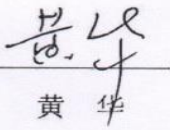 黄华
黄 华